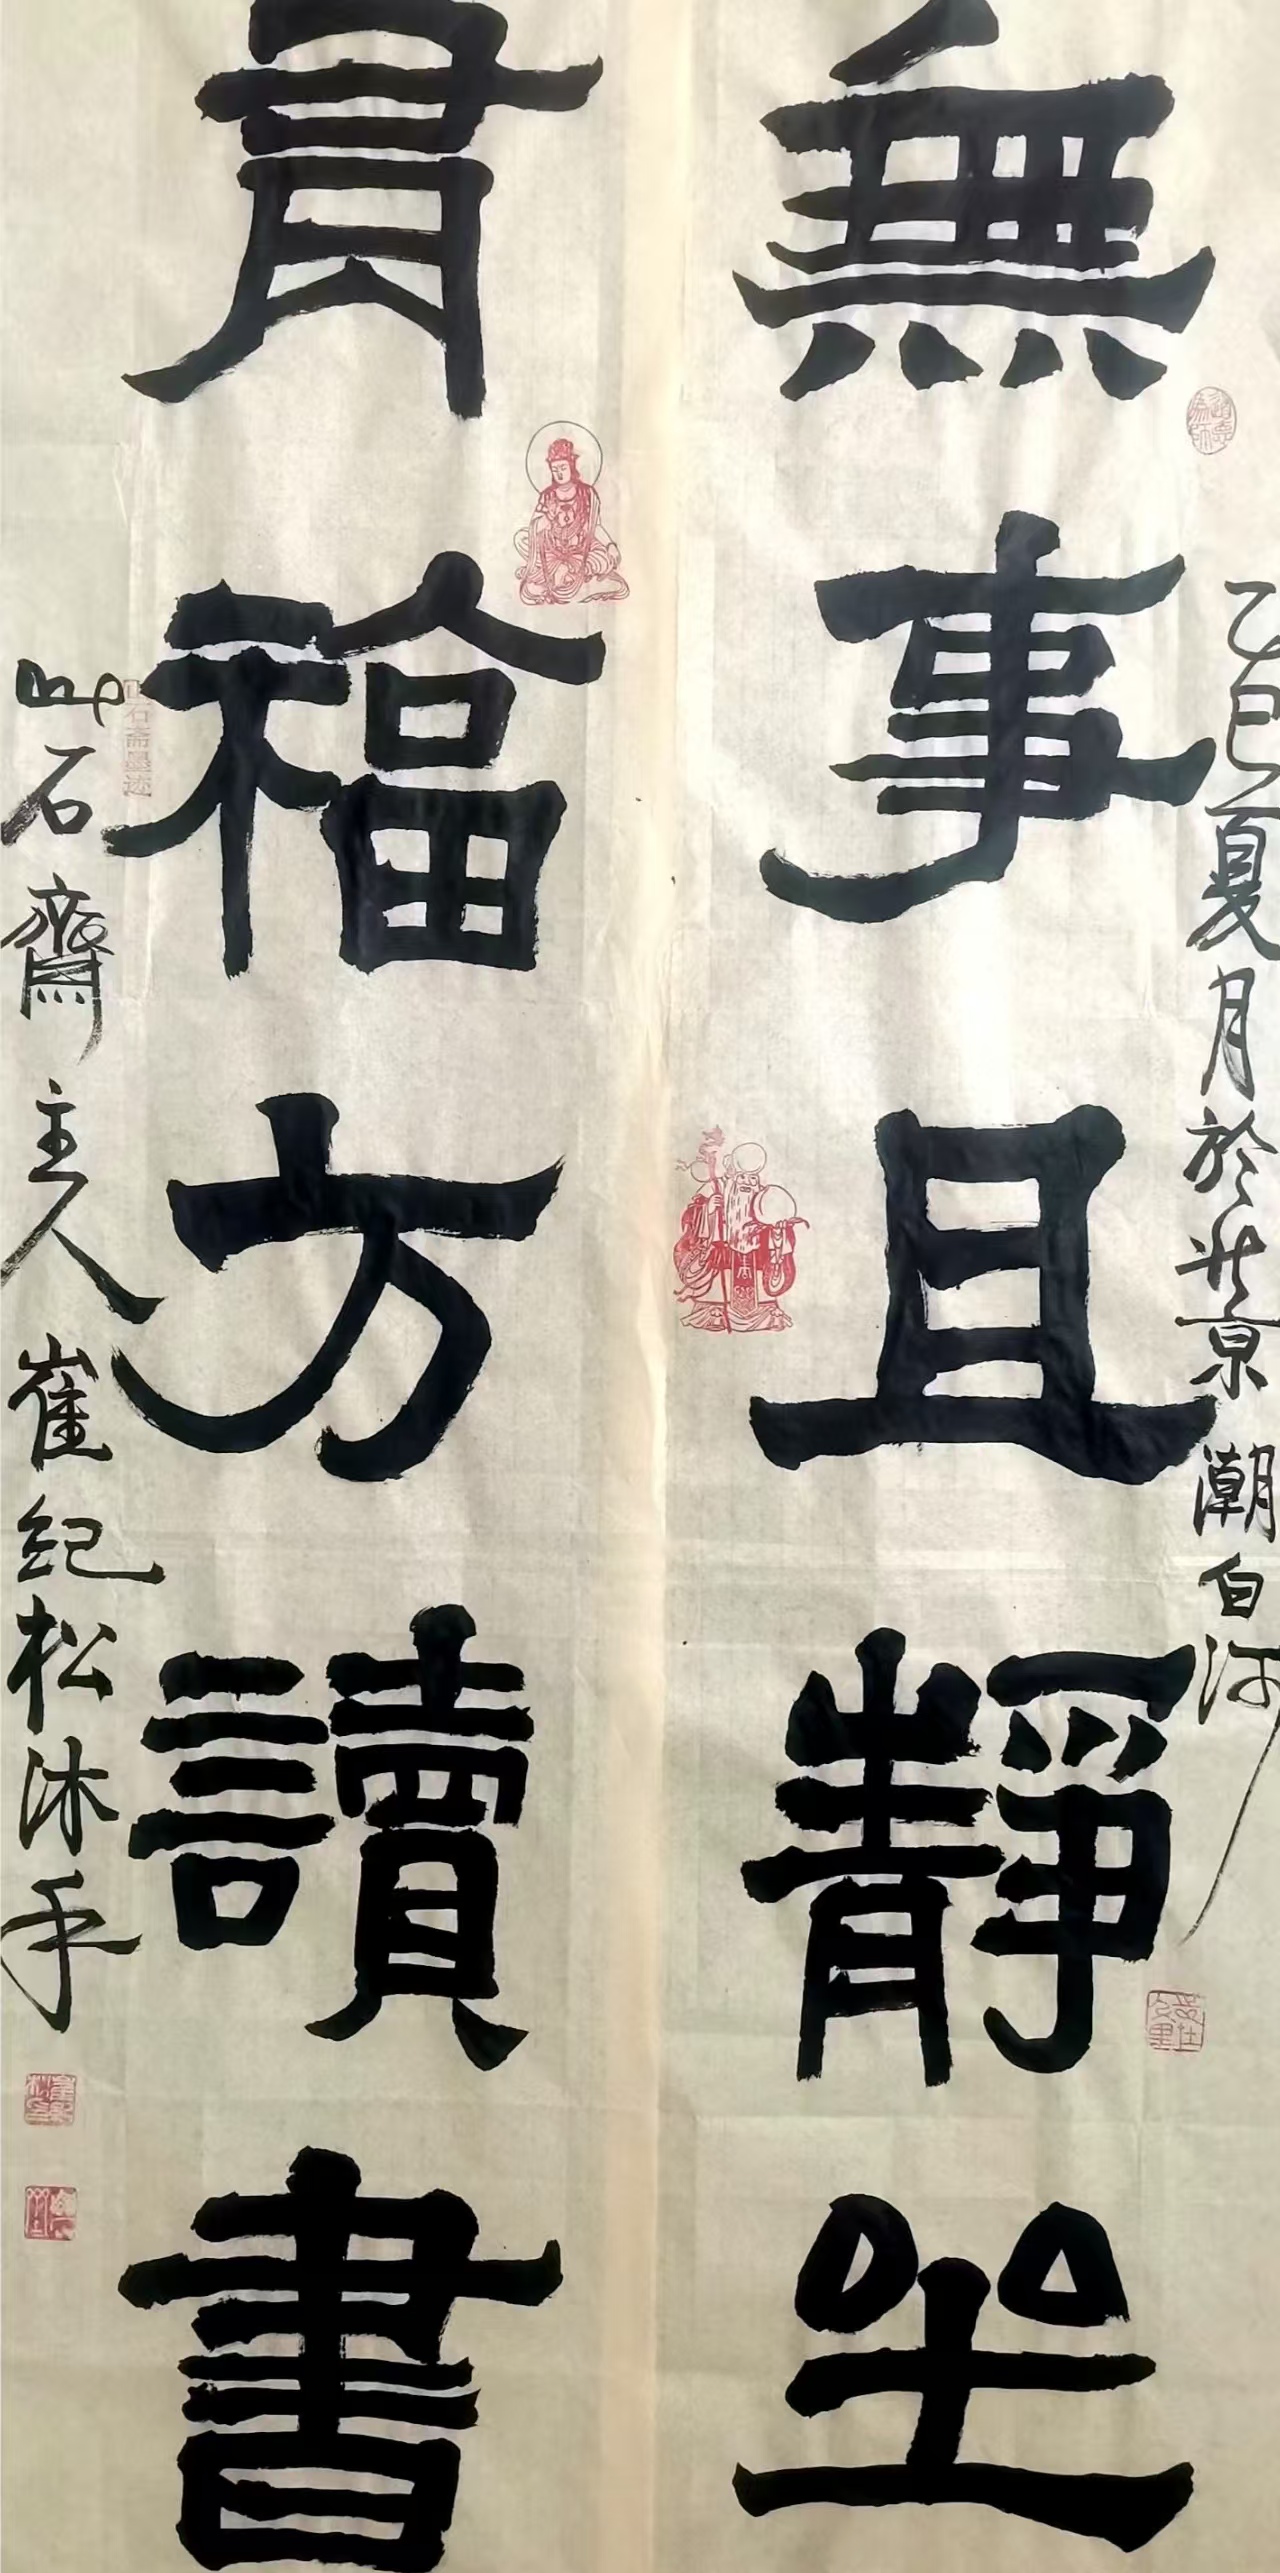 無事且靜坐
有福方讀書
乙巳夏月於北京潮白河
山石齋主人崔紀松沐手
山石斋墨迹